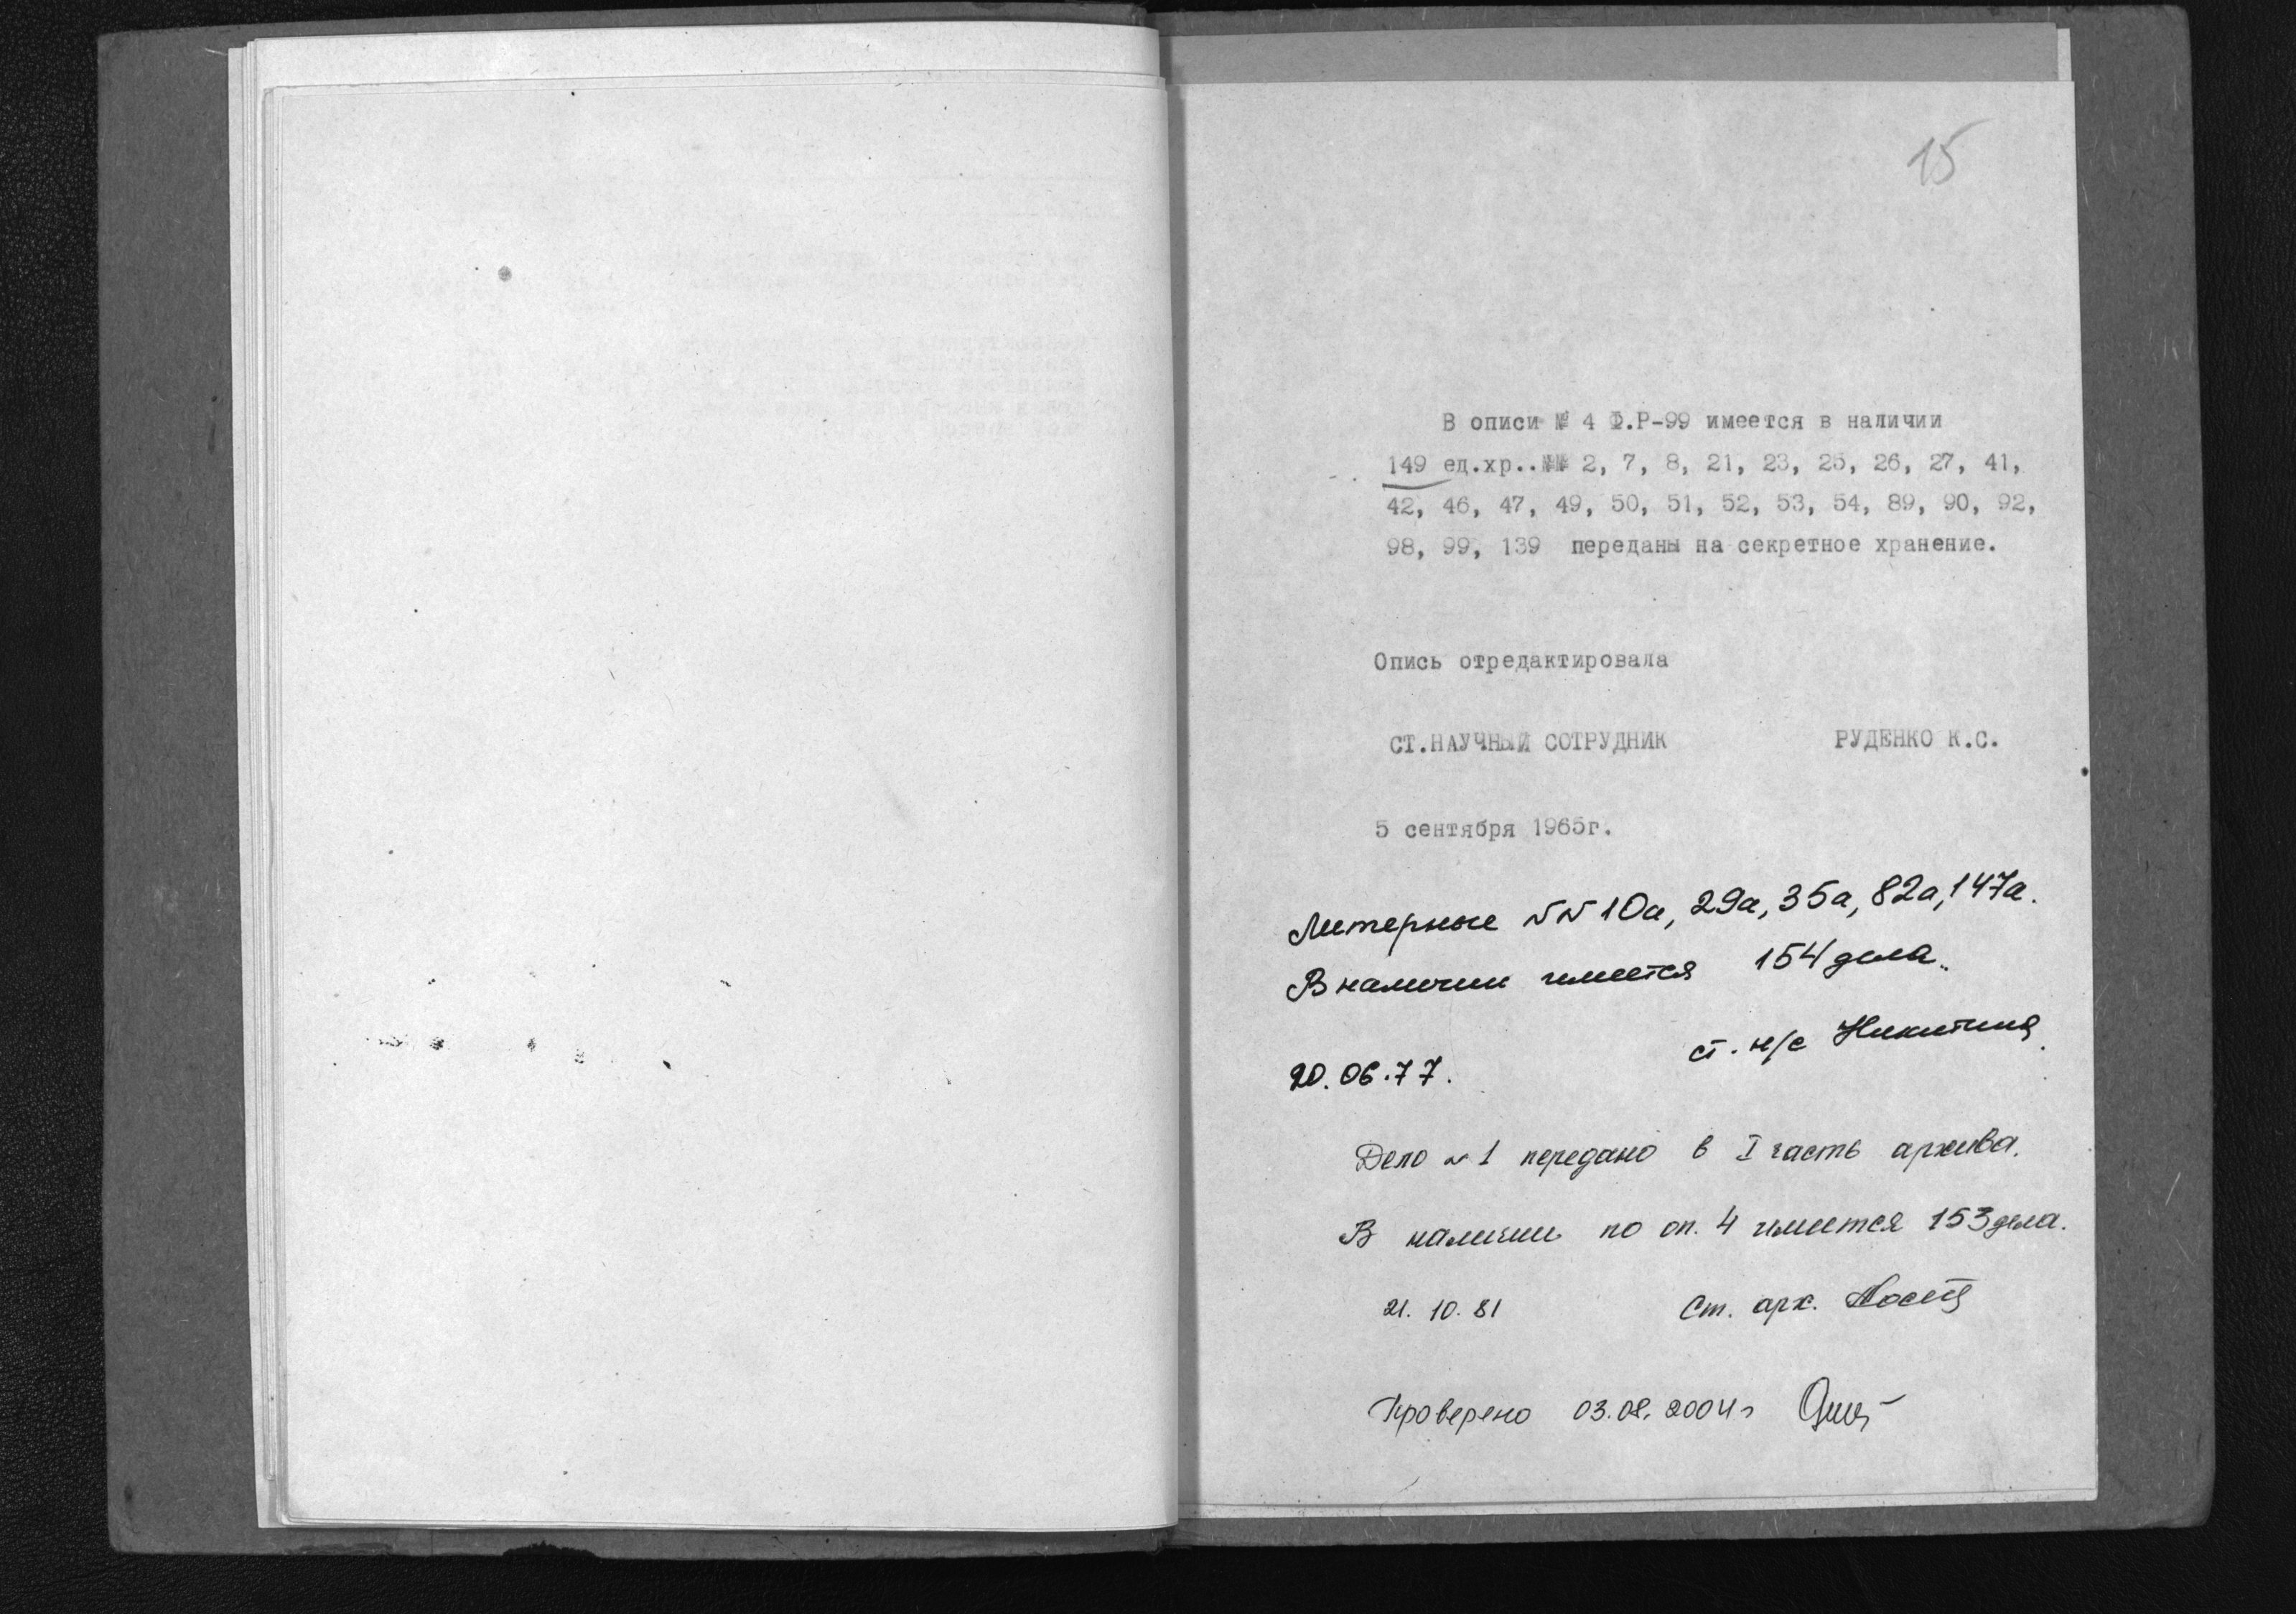 15
В описи № 4 Ф.Р-99 имеется в наличии
149 ед.хр..№№ 2, 7, 8, 21, 23, 25, 26, 27, 41,
42, 46, 47, 49, 50, 51, 52, 53, 54, 89, 90, 92,
98, 99, 139 переданы на секретное хранение.
Опись отредактировала
СТ.НАУЧНЫЙ СОТРУДНИК РУДЕНКО К.С.
5 сентября 1965г.
Литерные NN 10а, 29а, 35а, 82а, 147а.
В наличии имеется 154 дела.
ст. н/с Никитина
20.06.77.
Дело N 1 передано в I часть архива.
В наличии по оп. 4 имеется 153 дела.
21.10.81 Ст. арх.
Проверено 03.08.2004г